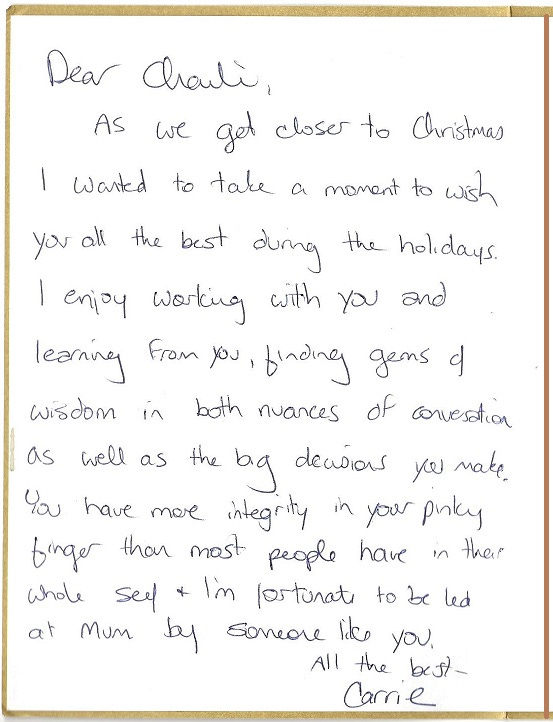 Dear Charli,
As we get closer to Christmas
I wanted to take a moment to wish
you all the best during the holidays.
I enjoy working with you and
learning from you, finding gems of
wisdom in both nuances of conversation
as well as the big decisions you make.
You have more integrity in your pinky
finger than most people have in their
whole self + I'm fortunate to be led
at Mum by someone like you.
All the best-
Carrie